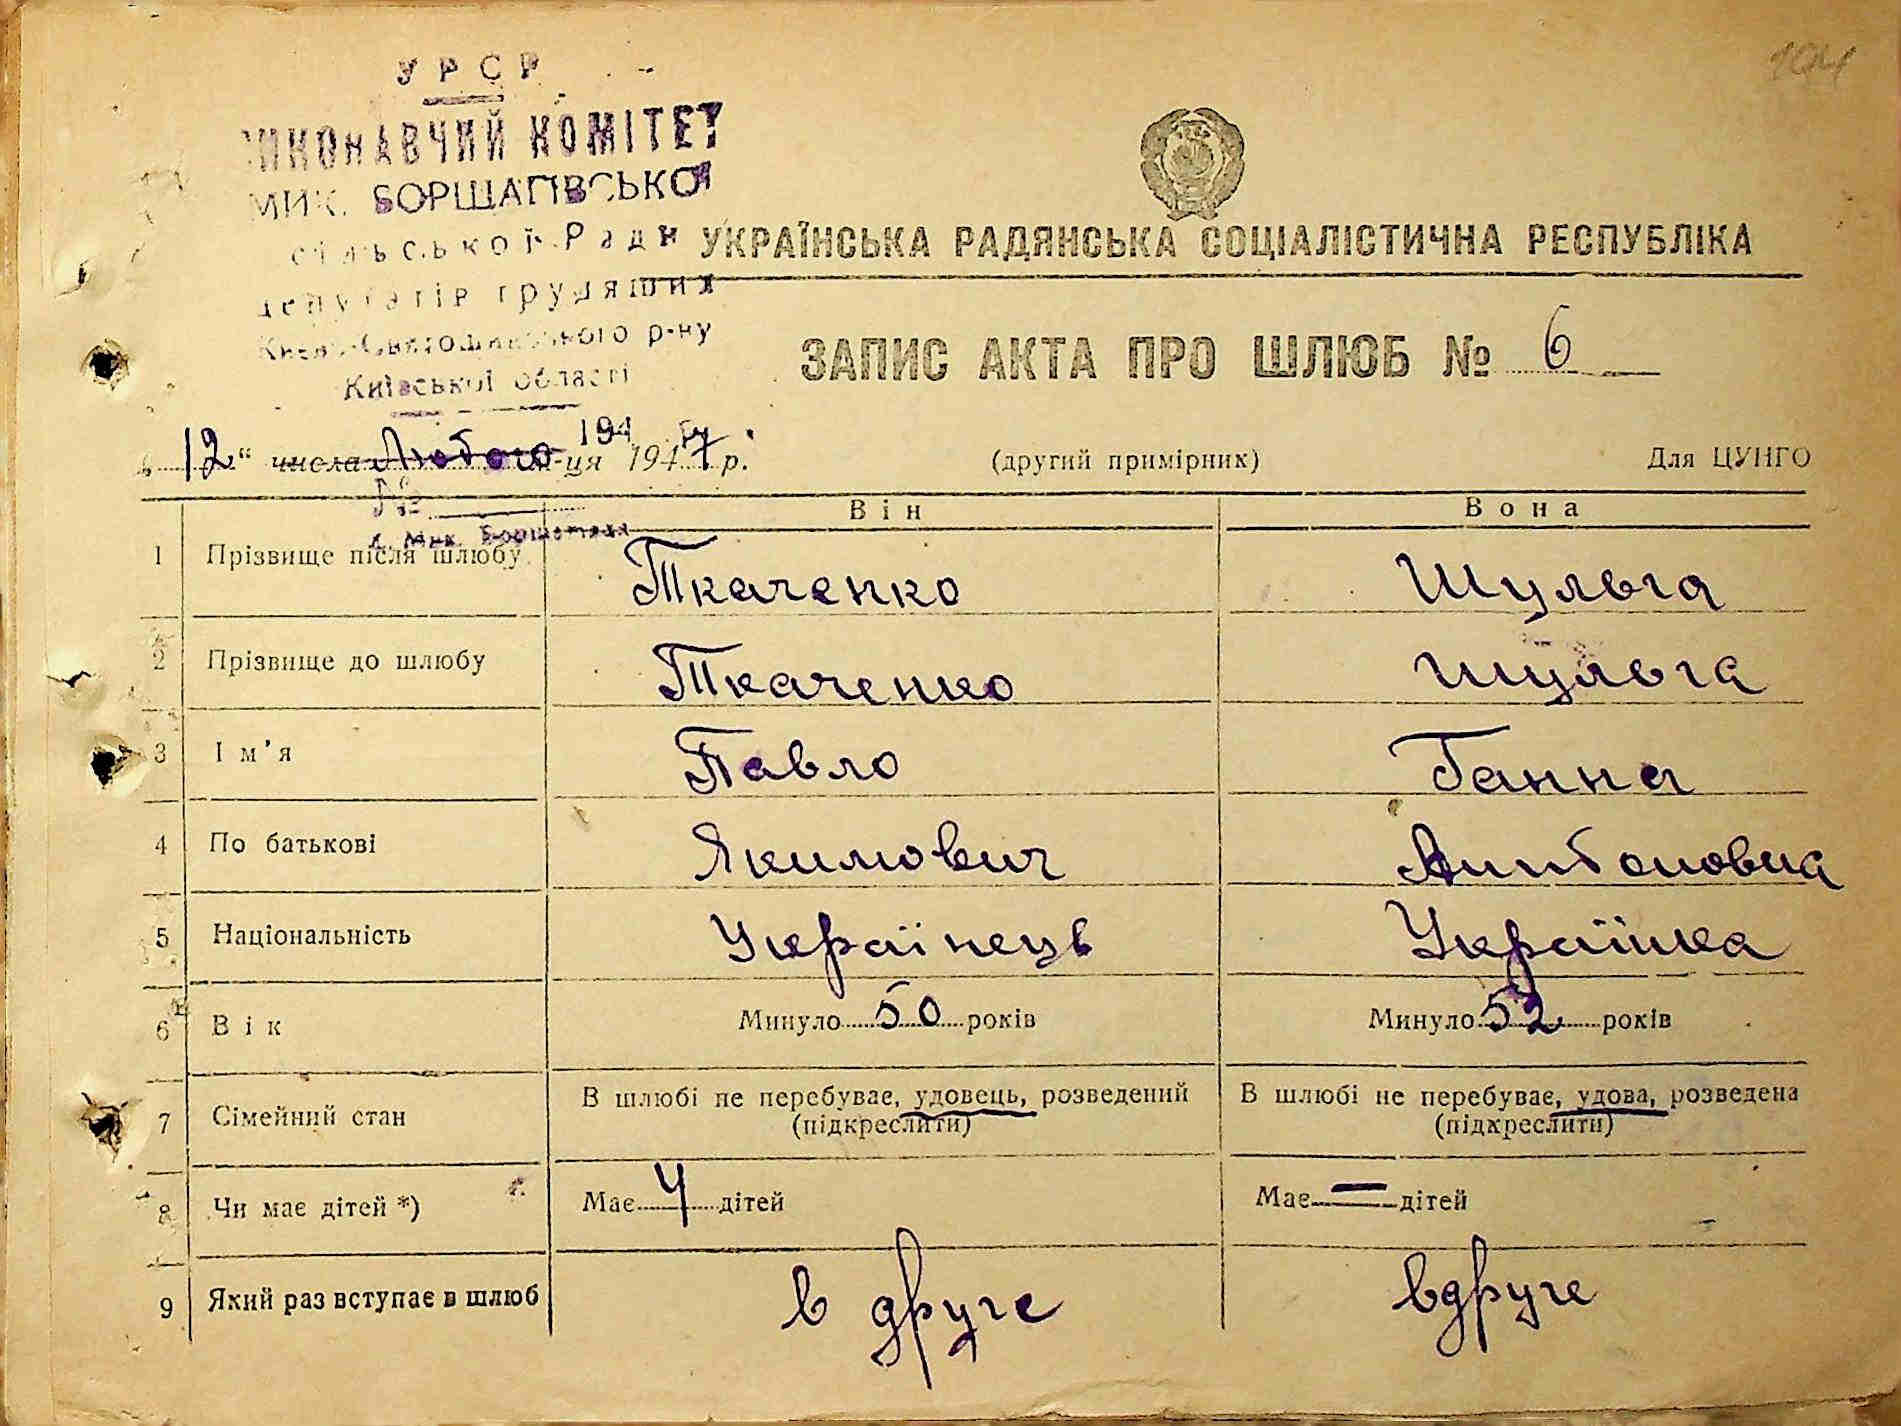 104
УРСР
ВИКОНАВЧИЙ КОМІТЕТ
МИК. БОРЩАГІВСЬКОЇ
сільської Ради
депутатів трудящих
Києво-Святошинського р-ну
Київської області
УКРАЇНСЬКА РАДЯНСЬКА СОЦІАЛІСТИЧНА РЕСПУБЛІКА
ЗАПИС АКТА ПРО ШЛЮБ № 6
194
„12“ числа Лютого м-ця 1947 р. (другий примірник) Для ЦУНГО
№
с. Мик. Борщагівка
Він Вона
1 Прізвище після шлюбу Ткаченко Шульга
2 Прізвище до шлюбу Ткаченко Шульга
3 Ім’я Павло Ганна
4 По батькові Якимович Антоновна
5 Національність Українець Українка
6 Вік Минуло 50 років Минуло 52 років
7 Сімейний стан В шлюбі не перебуває, удовець, розведений (підкреслити) В шлюбі не перебуває, удова, розведена (підкреслити)
8 Чи має дітей *) Має 4 дітей Має — дітей
9 Який раз вступає в шлюб в друге вдруге